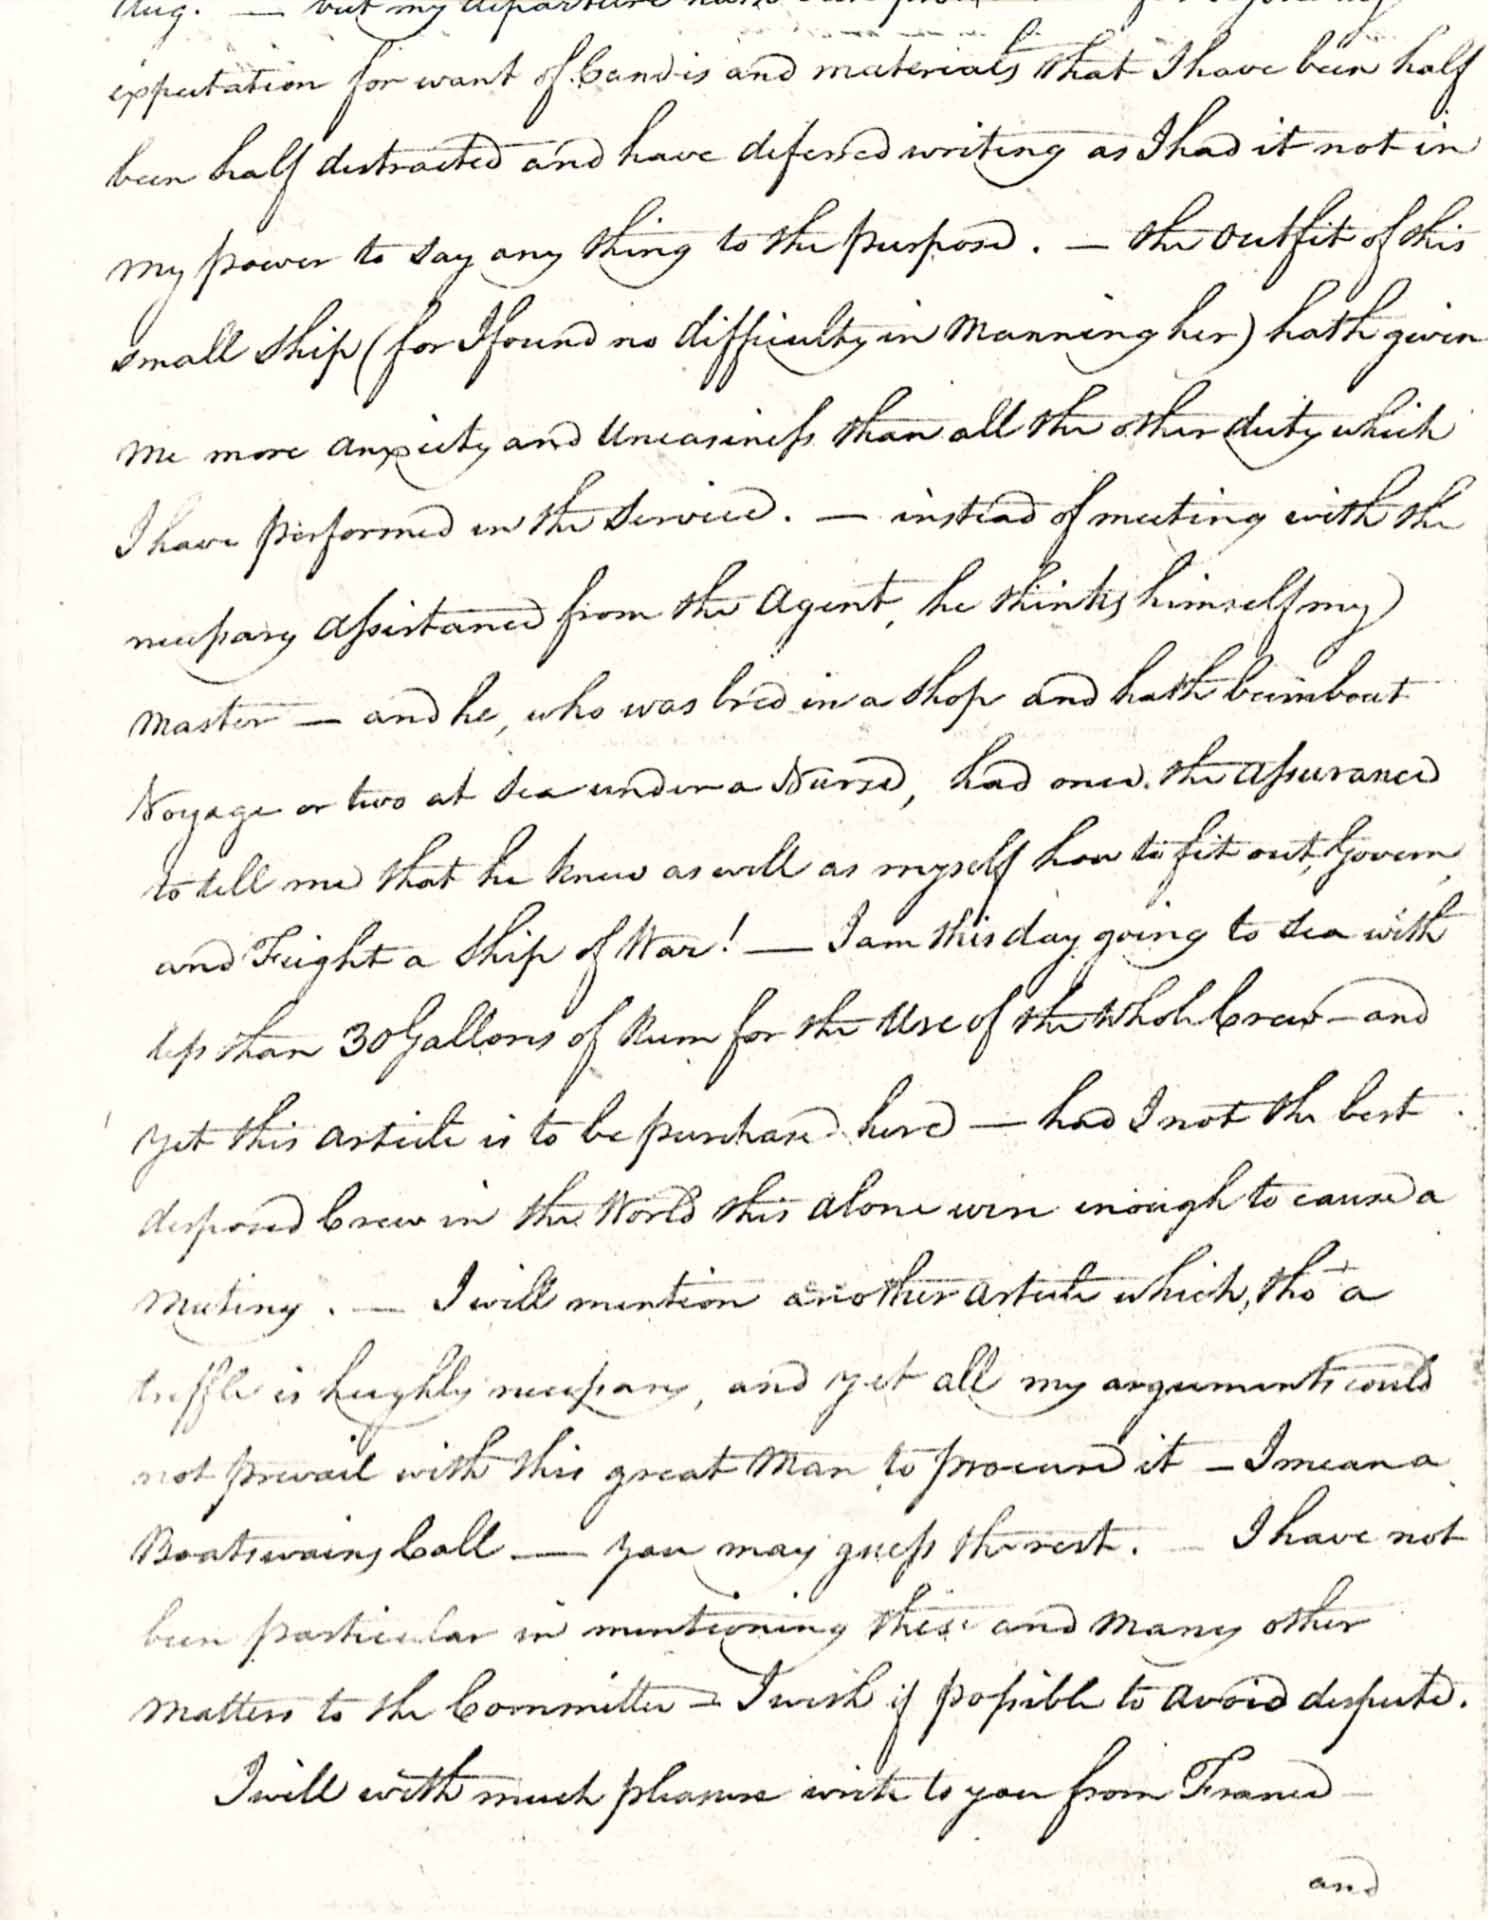 Aug. — but my departure hath been
expectation for want of hands and materials that I have been half
been half distracted and have deferred writing as I had it not in
my power to say any thing to the purpose. — the outfit of this
small ship (for I found no difficulty in Manning her) hath given
me more anxiety and Uneasiness than all the other duty which
I have performed in the Service. — instead of meeting with the
necessary Assistance from the Agent, he thinks himself my
Master — and he, who was bred in a shop and hath been about
Voyage or two at Sea under a Nurse, had once the assurance
to tell me that he knew as well as myself how to fit out, Govern,
and Feight a Ship of War! — I am this day going to Sea with
less than 30 Gallons of Rum for the Use of the Whole Crew — and
yet this article is to be purchased here — had I not the best
desposed Crew in the World this alone were enough to cause a
Mutiny. — I will mention another article which, tho' a
triffle is heighly necessary, and yet all my arguments could
not prevail with this great Man to procure it — I mean a
Boatswains Call — you may guess the rest. — I have not
been particular in mentioning these and many other
Matters to the Committee — I wish if possible to avoid despute.
I will with much pleasure write to you from France —
and